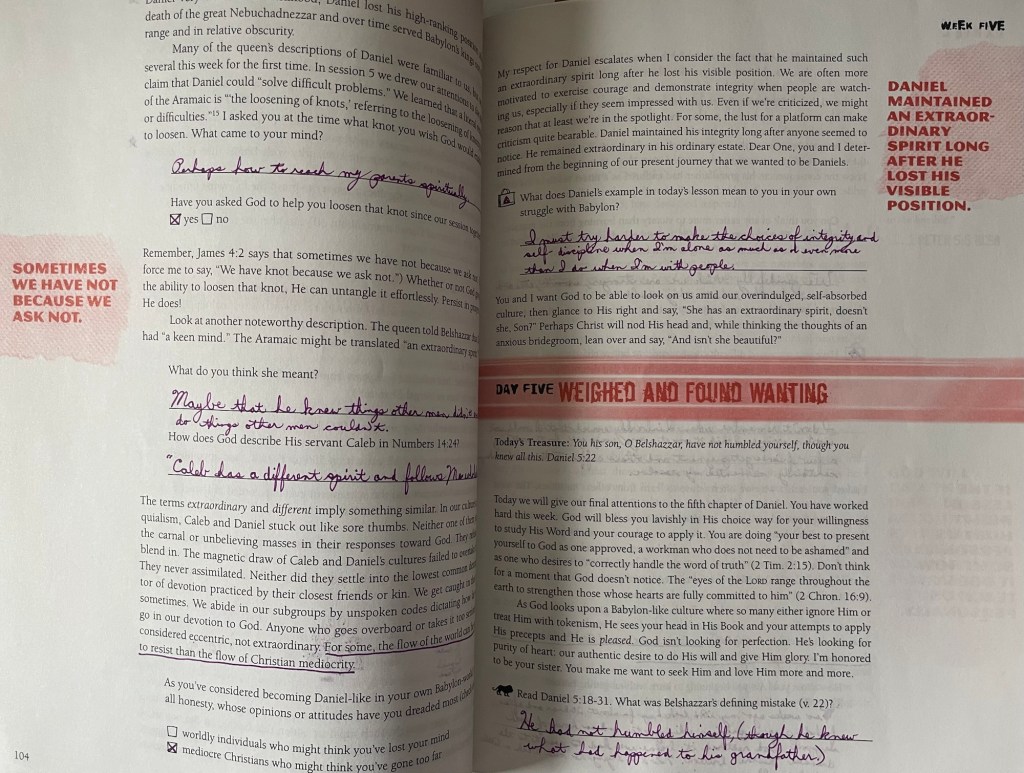 death of the great Nebuchadnezzar and over time served Babylon's
range and in relative obscurity.
Many of the queen's descriptions of Daniel were familiar to us,
several this week for the first time. In session 5 we drew our attentions to
claim that Daniel could "solve difficult problems." We learned that a literal
of the Aramaic is "'the loosening of knots,' referring to the loosening of
or difficulties."15 I asked you at the time what knot you wish God would
to loosen. What came to your mind?
Perhaps how to reach my parents spiritually
Have you asked God to help you loosen that knot since our session
☒ yes ☐ no
SOMETIMES
WE HAVE NOT
BECAUSE WE
ASK NOT.
Remember, James 4:2 says that sometimes we have not because we ask
force me to say, "We have knot because we ask not.") Whether or not God
the ability to loosen that knot, He can untangle it effortlessly. Persist in
He does!
Look at another noteworthy description. The queen told Belshazzar
had "a keen mind." The Aramaic might be translated "an extraordinary
What do you think she meant?
Maybe that he knew things other men didn't
do things other men couldn't.
How does God describe His servant Caleb in Numbers 14:24?
"Caleb has a different spirit and follows Me
The terms extraordinary and different imply something similar. In our
quialism, Caleb and Daniel stuck out like sore thumbs. Neither one of
the carnal or unbelieving masses in their responses toward God. They
blend in. The magnetic draw of Caleb and Daniel's cultures failed to
They never assimilated. Neither did they settle into the lowest common
tor of devotion practiced by their closest friends or kin. We get caught in
sometimes. We abide in our subgroups by unspoken codes dictating how
go in our devotion to God. Anyone who goes overboard or takes it too
considered eccentric, not extraordinary. For some, the flow of the world
to resist than the flow of Christian mediocrity.
As you've considered becoming Daniel-like in your own
all honesty, whose opinions or attitudes have you dreaded most
☐ worldly individuals who might think you've lost your mind
☒ mediocre Christians who might think you've gone too far
104
WEEK FIVE
My respect for Daniel escalates when I consider the fact that he maintained such
an extraordinary spirit long after he lost his visible position. We are often more
motivated to exercise courage and demonstrate integrity when people are watch-
ing us, especially if they seem impressed with us. Even if we're criticized, we might
reason that at least we're in the spotlight. For some, the lust for a platform can make
criticism quite bearable. Daniel maintained his integrity long after anyone seemed to
notice. He remained extraordinary in his ordinary estate. Dear One, you and I deter-
mined from the beginning of our present journey that we wanted to be Daniels.
DANIEL
MAINTAINED
AN EXTRAOR-
DINARY
SPIRIT LONG
AFTER HE
LOST HIS
VISIBLE
POSITION.
What does Daniel's example in today's lesson mean to you in your own
struggle with Babylon?
I must try harder to make the choices of integrity and
self-discipline when I'm alone as much as or even more
than I do when I'm with people.
You and I want God to be able to look on us amid our overindulged, self-absorbed
culture, then glance to His right and say, "She has an extraordinary spirit, doesn't
she, Son?" Perhaps Christ will nod His head and, while thinking the thoughts of an
anxious bridegroom, lean over and say, "And isn't she beautiful?"
DAY FIVE WEIGHED AND FOUND WANTING
Today's Treasure: You his son, O Belshazzar, have not humbled yourself, though you
knew all this. Daniel 5:22
Today we will give our final attentions to the fifth chapter of Daniel. You have worked
hard this week. God will bless you lavishly in His choice way for your willingness
to study His Word and your courage to apply it. You are doing "your best to present
yourself to God as one approved, a workman who does not need to be ashamed" and
as one who desires to "correctly handle the word of truth" (2 Tim. 2:15). Don't think
for a moment that God doesn't notice. The "eyes of the LORD range throughout the
earth to strengthen those whose hearts are fully committed to him" (2 Chron. 16:9).
As God looks upon a Babylon-like culture where so many either ignore Him or
treat Him with tokenism, He sees your head in His Book and your attempts to apply
His precepts and He is pleased. God isn't looking for perfection. He's looking for
purity of heart: our authentic desire to do His will and give Him glory. I'm honored
to be your sister. You make me want to seek Him and love Him more and more.
Read Daniel 5:18-31. What was Belshazzar's defining mistake (v. 22)?
He had not humbled himself, (though he knew
what had happened to his grandfather.)